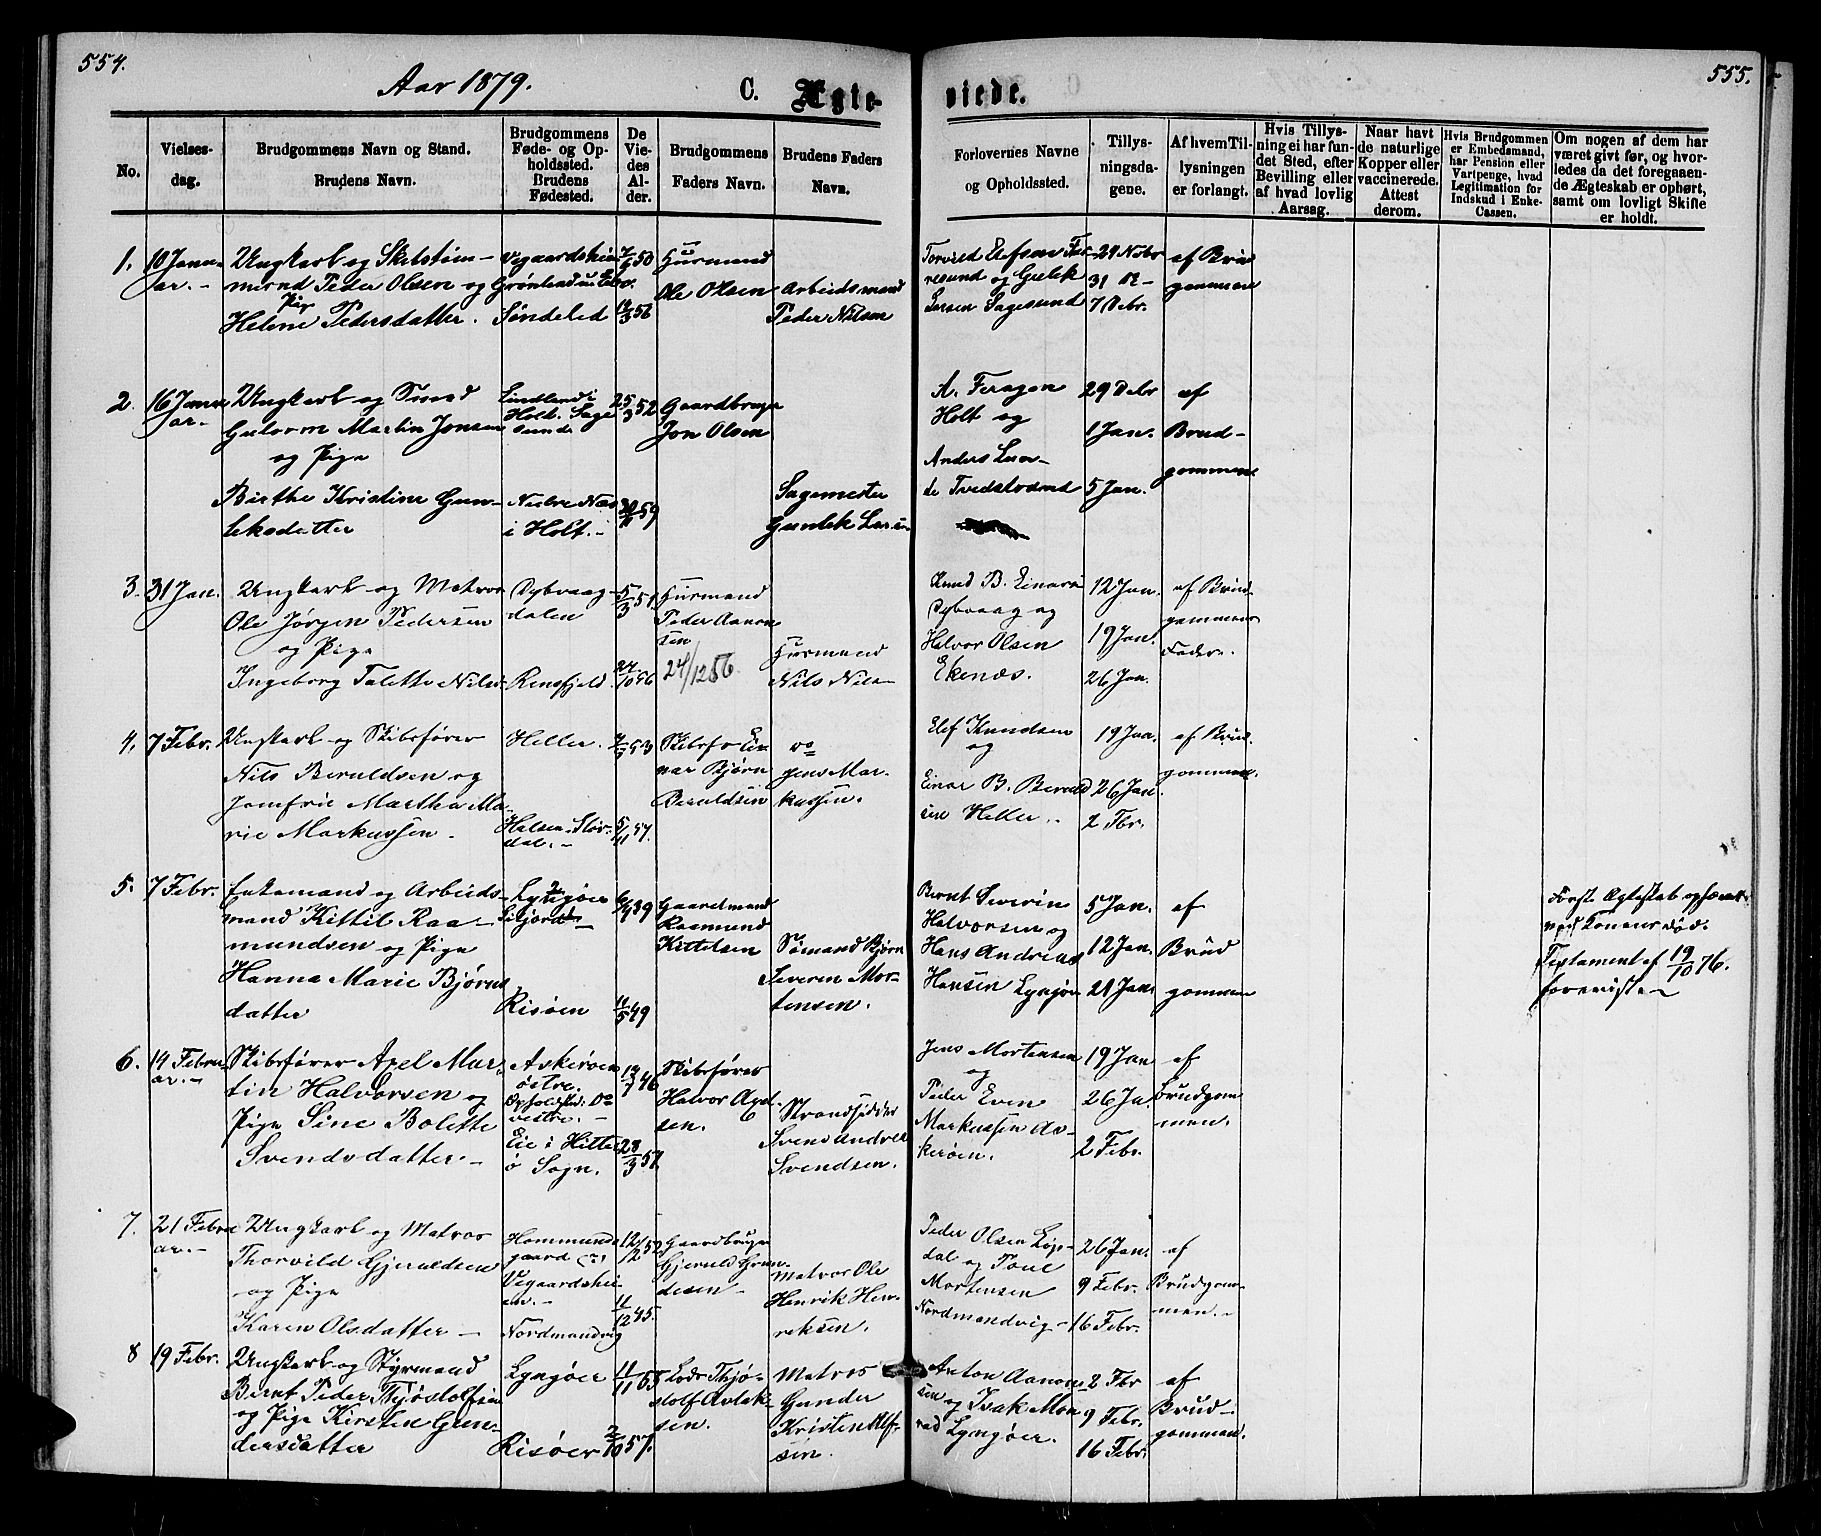 554.
Aar 1879.
C. Ægte-
viede.
555.
No.
Vielses-
dag.
Brudgommens Navn og Stand.
Brudens Navn.
Brudgommens
Føde- og Op-
holdssted.
Brudens
Fødested.
De
Vie-
des
Al-
der.
Brudgommens
Faders Navn.
Brudens Faders
Navn.
Forlovernes Navne
og Opholdssted.
Tillys-
ningsda-
gene.
Af hvem Til-
lysningen
er forlangt.
Hvis Tillys-
ning ei har fun-
det Sted, efter
Bevilling eller
af hvad lovlig
Aarsag.
Naar havt
de naturlige
Kopper eller
vaccinerede.
Attest
derom.
Hvis Brudgommen
er Embedsmand,
har Pension eller
Vartpenge, hvad
Legitimation for
Indskud i Enke-
Cassen.
Om nogen af dem har
været givt før, og hvor-
ledes da det foregaaen-
de Ægteskab er ophørt,
samt om lovligt Skifte
er holdt.
1.
10 Janu-
ar.-
Ungkarl og Skibstøm-
mermd Peder Olsen og
Pige
Helene Pedersdatter.
Vegaardsheien
Søndeled
50
12/3 56
Husmand
Ole Olsen
Arbeidsmand
Peder Nilsen
Larsen Sagesund
29 Novbr
31 D-
7 Debr.
af Brud
gommen
2.
16 Janu
ar-
Ungkarl og Smed
Gulovm Martin Jonsen
og Pige
Birthe Kristine Gun-
leksdatter
Lindland i
Holt. Sage
sund
Nedre Næs
i Holt.-
25/3 52
59
Gaardbruger
Jon Olsen
Sagemester
Gunlek Larsen
A. Feragen
Holt og
Anders Lun-
de Tvedestrand
29 Debr
1 Jan.
5 Jan.
af
Brud-
gommen.
3.
31 Jan.
Ungkarl og Matros
Ole Jørgen Pedersen
og Pige
Ingeborg Talette Nilsd.
Dybvaag-
dalen
Rensfjeld.
5/3 51.
24/10 56
Husmand
Peder Aanon
sen
24/12 56
Husmand
Nils Nils-
Knud B. Einars
Dybvaag og
Halvor Olsen
Ekenæs.
12 Jan.
19 Jan.
26 Jan.
af Brud-
gommens
Fader.
4.
7 Febr.
Ungkarl og Skibsfører
Nils Beruldsen og
Jomfru Martha Ma-
rie Markussen-
Heller.
53
5/11 57.
Skibsfø Ei-
nar Bjørn
Beruldsen
Do
Jens Mar-
kussen.
Elef Knudsen
og
Einar B. Beruld
sen Heller.
19 Jan.
26 Jan.
2 Fbr.
af Brud-
gommen.
5.
7 Febr.
Enkemand og Arbeids-
mand Kittil Raa-
mundsen og Pige
Hanna Marie Bjørns
datter
Lyngøer
Risøen
39
11/5 49
Gaardmand
Raamund
Kittelsen
Sømand Bjørn
Severin Mor-
tensen.
Bernt Severin
Halvorsen og
Hans Andreas
Hansen Lyngør
5 Jan.
12 Jan.
21 Jan.
af
Brud
gommen
Første Ægteskab ophævet
ved Konens Død.
Testament af 19/10 76.
forevist-
6.
14 Febru
ar.-
Skibsfører Axel Mar-
tin Halvorsen og
Pige Sine Bolette
Svendsdatter.-
Askerøen
østre.
Opholdsted: Do
vestre.-
Eie i Hitter
ø Sogn.
46
28/3 57
Skibsfører
Halvor Axel-
sen.
Strandsidder
Svend Andreas
Svendsen.
Jens Mortensen
og
Peder Even
Markussen As-
kerøen.
19 Jan
26 Ja.
2 Febr.
af
Brudgom
men.
7.
21 Febru
ar.-
Ungkarl og Matros
Thorvild Gjeruldsen
og Pige
Karen Olsdatter-
Hommunds
gaard
Vegaardshei-
en.-
Nordmandvig
12/12 52
11/12 45.
Gaardbruger
Gjeruld Gun-
dersen-
Matros Ole
Henrik Hen-
riksen.
Peder Olsen Løv-
dal og Poul
Mortensen
Nordmandvig-
26 Jan.
9 Febr.
16 Febr.
af
Brudgom-
men.-
8
19 Febr.
Ungkarl og Styrmand
Bernt Peder Thjøstolfsen
og Pige Kirsten Gun-
dersdatter
Lyngøer
Risøer
11/11 65
2/10 57.
Lods Thjø-
stolf Aslak-
sen.
Matros
Gunder
Kristen Alf-
sen.
Anton Aanon-
sen og Isak Mon
rad Lyngøer.
2 Fbr
9 Febr.
16 Febr.
af
Brud-
gommen.